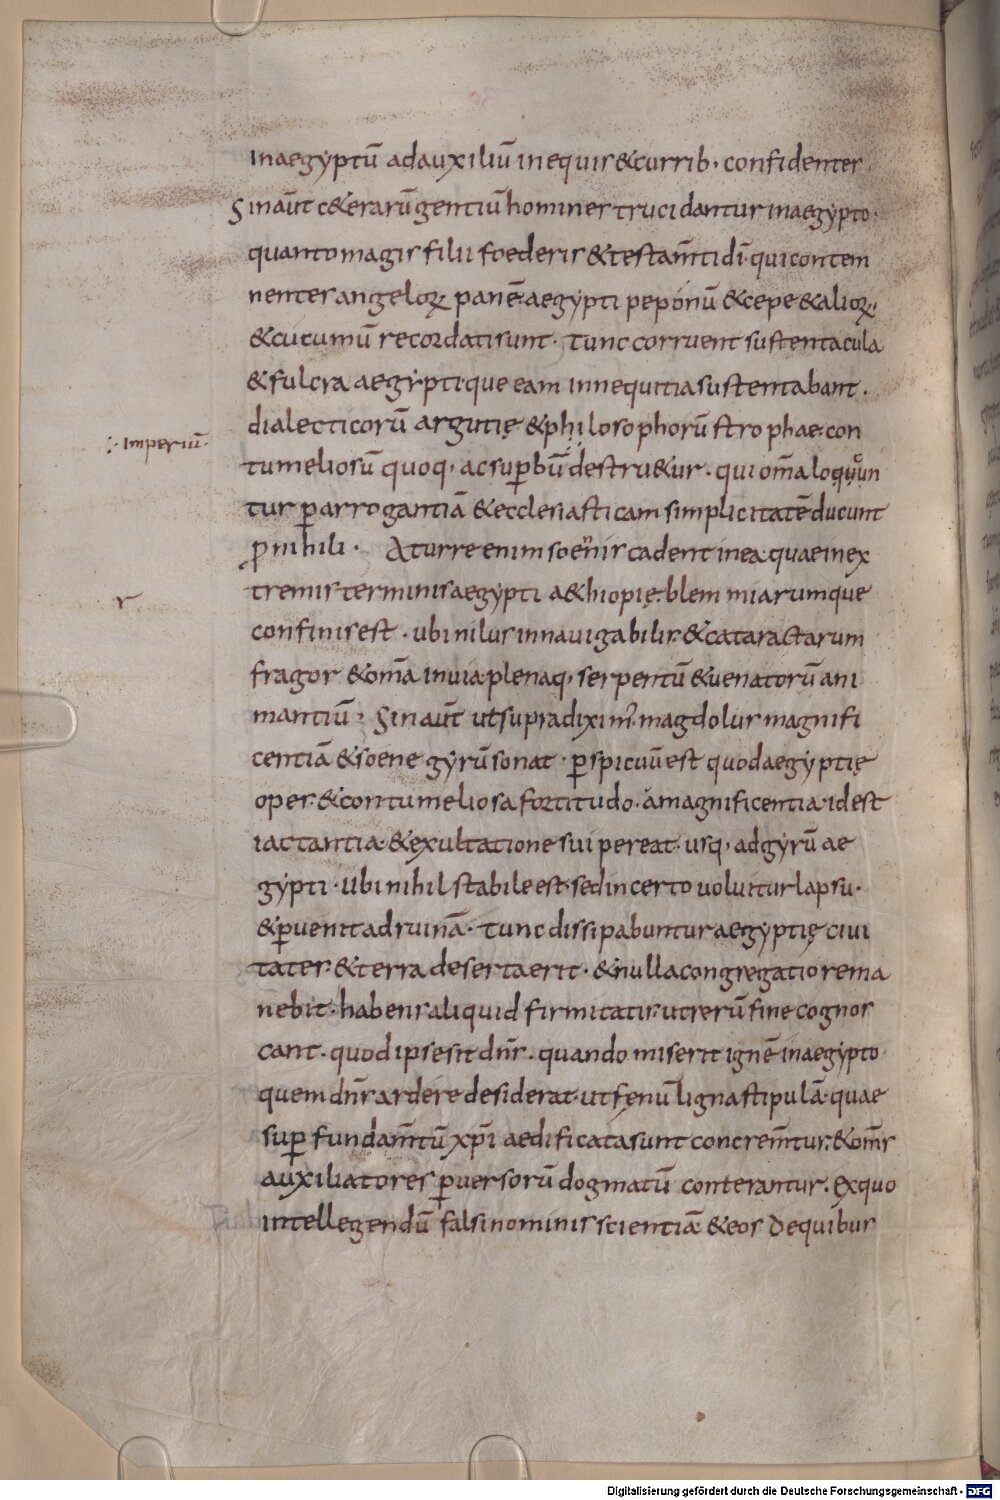 inaegyptū adauxiliū inequis &currib· confidentes
Sinaūt c&erarū gentiū homines trucidantur inaegypto·
quantomagis filii foederis &testam̄ti dī· quicontem
nentes angeloꝝ panē· aegypti peponū &cepe &alioꝝ·
&cucumū recordatisunt· Tunc corruent sustentacula
&fulcra aegypti que eam innequitia sustentabant·
dialecticorū argutię &philosophorū strophae· con
∴ Imperiū·
tumeliosū quoq· acsuꝑbū ∴ destru&ur· qui om̄a loquun
tur ꝑarrogantiā &ecclesiasticam simplicitatē ducunt
ꝓnihili· Aturre enim soenis cadent inea· quae inex
tremis terminis aegypti a&hiopię· blemmiarumque
r
confinis est· ubi nilus innauigabilis· &cataractarum
fragor &om̄a inuia plenaq· serpentū &uenatorū ani
mantiū· Sinaūt utsupra diximꝰ magdolus magnifi
centiā &soene gyrū sonat· ꝑspicuū est quod aegyptię
opes· &contumeliosa fortitudo· amagnificentia· idest
iactantia· &exultatione sui pereat· usq· adgyrū ae
gypti· Ubi nihil stabile est· sed incerto uoluitur lapsu·
&ꝑuenit adruinā· Tunc dissipabuntur aegyptię ciui
tates· &terra deserta erit· &nulla congregatio rema
nebit· habens aliquid firmitatis· utrerū fine cognos
cant· quod ipse sit dn̄s· quando miserit ignē inaegypto
quem dn̄s ardere desiderat· ut fęnū ligna stipulā· quae
suꝑ fundam̄tū xp̄i aedificata sunt concrem̄tur· &om̄s
auxiliatores ꝑuersorū dogmatū conterantur· Exquo
intellegendū falsi nominis scientiā &eos dequibus
Digitalisierung gefördert durch die Deutsche Forschungsgemeinschaft - DFG